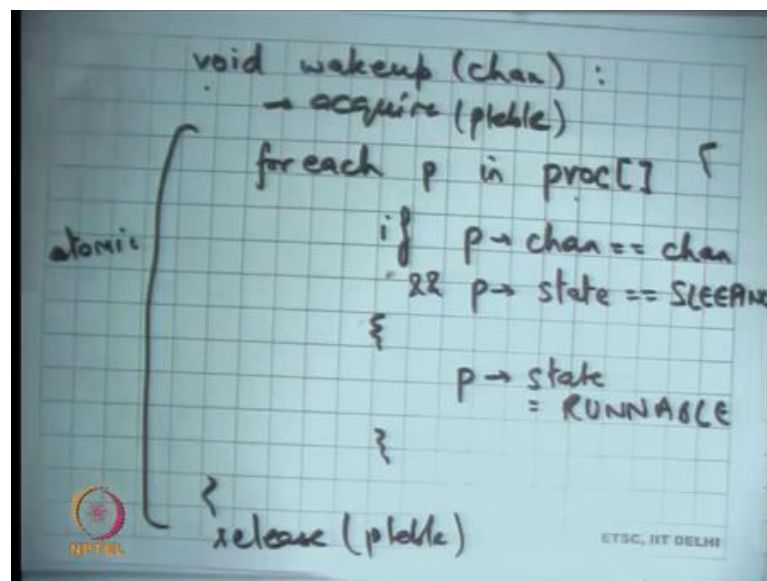 void wakeup (chan) :
→ acquire (ptable)
for each p in proc[] {
atomic
if p → chan == chan
&& p → state == SLEEPING
{
p → state
= RUNNABLE
}
}
release (ptable)
NPTEL
ETSC, IIT DELHI